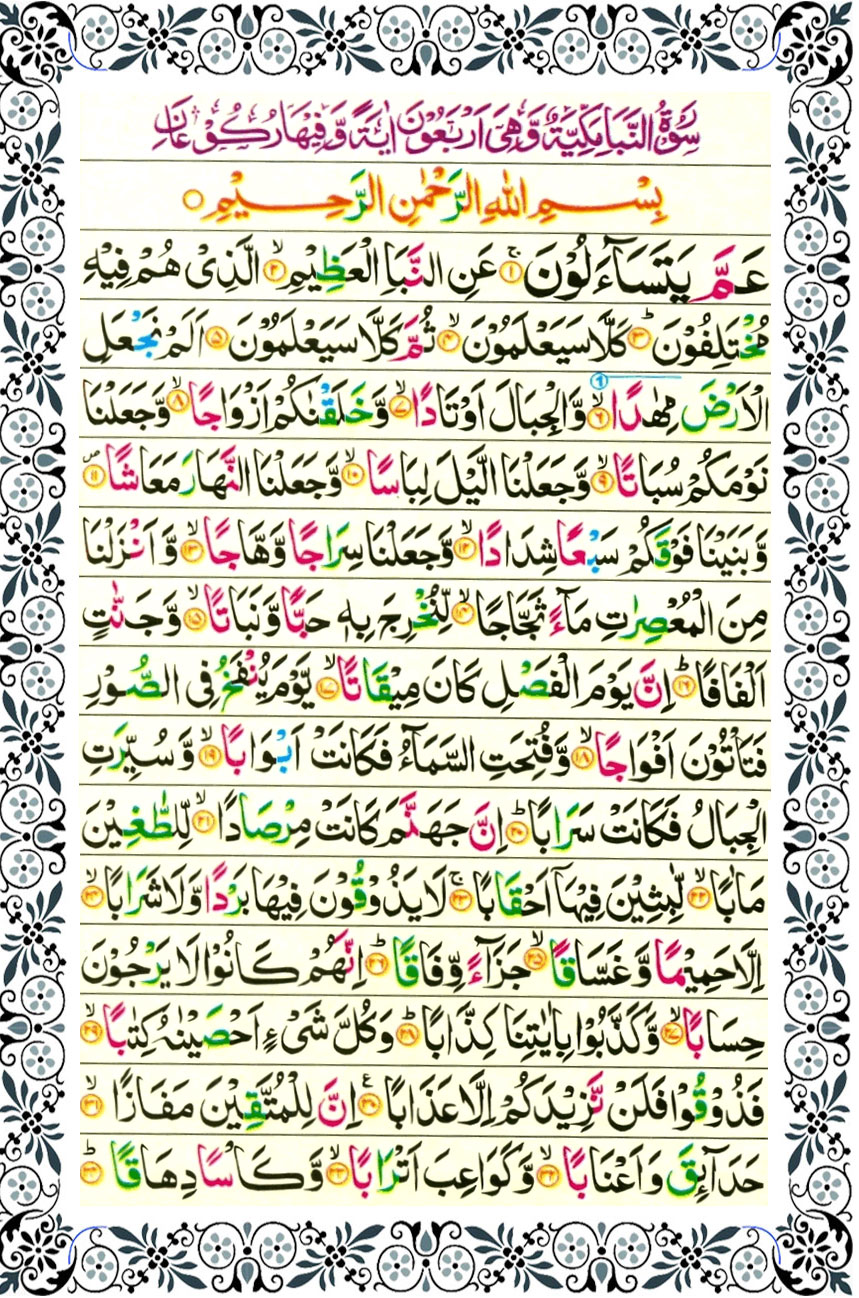 سُوْرَةُ النَّبَاِ مَكِّيَّةٌ وَّهِیَ اَرْبَعُوْنَ اٰيَةً وَّفِيْهَا رُكُوْعَانِ
بِسْمِ اللّٰهِ الرَّحْمٰنِ الرَّحِيْمِ ○
عَمَّ يَتَسَآءَلُوْنَ ۚ﴿۱﴾ عَنِ النَّبَاِ الْعَظِيْمِ ۙ﴿۲﴾ الَّذِیْ هُمْ فِيْهِ
مُخْتَلِفُوْنَ ؕ﴿۳﴾ كَلَّا سَيَعْلَمُوْنَ ۙ﴿۴﴾ ثُمَّ كَلَّا سَيَعْلَمُوْنَ ﴿۵﴾ اَلَمْ نَجْعَلِ
الْاَرْضَ مِهٰدًا ۙ﴿۶﴾ وَّالْجِبَالَ اَوْتَادًا ۙ﴿۷﴾ وَّخَلَقْنٰكُمْ اَزْوَاجًا ۙ﴿۸﴾ وَّجَعَلْنَا
نَوْمَكُمْ سُبَاتًا ۙ﴿۹﴾ وَّجَعَلْنَا الَّيْلَ لِبَاسًا ۙ﴿۱۰﴾ وَّجَعَلْنَا النَّهَارَ مَعَاشًا ۪﴿۱۱﴾
وَّبَنَيْنَا فَوْقَكُمْ سَبْعًا شِدَادًا ۙ﴿۱۲﴾ وَّجَعَلْنَا سِرَاجًا وَّهَّاجًا ۙ﴿۱۳﴾ وَّاَنْزَلْنَا
مِنَ الْمُعْصِرٰتِ مَآءً ثَجَّاجًا ۙ﴿۱۴﴾ لِّنُخْرِجَ بِهٖ حَبًّا وَّنَبَاتًا ۙ﴿۱۵﴾ وَّجَنّٰتٍ
اَلْفَافًا ؕ﴿۱۶﴾ اِنَّ يَوْمَ الْفَصْلِ كَانَ مِيْقَاتًا ۙ﴿۱۷﴾ يَّوْمَ يُنْفَخُ فِی الصُّوْرِ
فَتَاْتُوْنَ اَفْوَاجًا ۙ﴿۱۸﴾ وَّفُتِحَتِ السَّمَآءُ فَكَانَتْ اَبْوَابًا ۙ﴿۱۹﴾ وَّسُيِّرَتِ
الْجِبَالُ فَكَانَتْ سَرَابًا ؕ﴿۲۰﴾ اِنَّ جَهَنَّمَ كَانَتْ مِرْصَادًا ۙ﴿۲۱﴾ لِّلطّٰغِيْنَ
مَاٰبًا ۙ﴿۲۲﴾ لّٰبِثِيْنَ فِيْهَآ اَحْقَابًا ۚ﴿۲۳﴾ لَا يَذُوْقُوْنَ فِيْهَا بَرْدًا وَّلَا شَرَابًا ۙ﴿۲۴﴾
اِلَّا حَمِيْمًا وَّغَسَّاقًا ۙ﴿۲۵﴾ جَزَآءً وِّفَاقًا ؕ﴿۲۶﴾ اِنَّهُمْ كَانُوْا لَا يَرْجُوْنَ
حِسَابًا ۙ﴿۲۷﴾ وَّكَذَّبُوْا بِاٰيٰتِنَا كِذَّابًا ؕ﴿۲۸﴾ وَكُلَّ شَیْءٍ اَحْصَيْنٰهُ كِتٰبًا ۙ﴿۲۹﴾
فَذُوْقُوْا فَلَنْ نَّزِيْدَكُمْ اِلَّا عَذَابًا ﴿۳۰﴾ع اِنَّ لِلْمُتَّقِيْنَ مَفَازًا ۙ﴿۳۱﴾
حَدَآئِقَ وَاَعْنَابًا ۙ﴿۳۲﴾ وَّكَوَاعِبَ اَتْرَابًا ۙ﴿۳۳﴾ وَّكَاْسًا دِهَاقًا ؕ﴿۳۴﴾